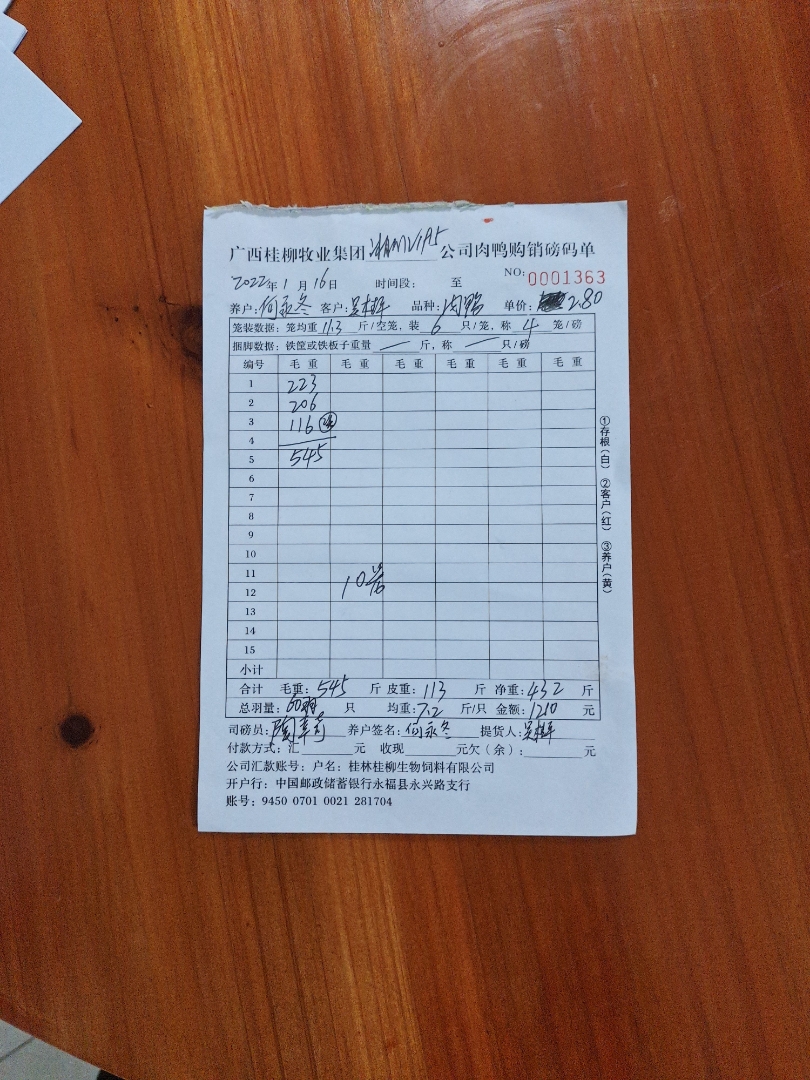 广西桂柳牧业集团 公司肉鸭购销磅码单
2022年1月16日 时间段： 至 NO: 0001363
养户：何永冬 客户： 品种：肉鸭 单价：2.80
笼装数据：笼均重 11.3 斤/空笼，装 6 只/笼，称 4 笼/磅
捆脚数据：铁筐或铁板子重量 — 斤，称 — 只/磅
编号 毛重 毛重 毛重 毛重 毛重 毛重
1 223
2 206
3 116
4
5 545
6
7
8
9
10
11
12 10笼
13
14
15
小计
合计 毛重：545 斤 皮重：113 斤 净重：432 斤
总羽量：60羽 只 均重：7.2 斤/只 金额：1210 元
司磅员： 养户签名：何永冬 提货人：
付款方式：汇 元 收现 元欠（余）： 元
公司汇款账号：户名：桂林桂柳生物饲料有限公司
开户行：中国邮政储蓄银行永福县永兴路支行
账号：9450 0701 0021 281704
①存根（白） ②客户（红） ③养户（黄）